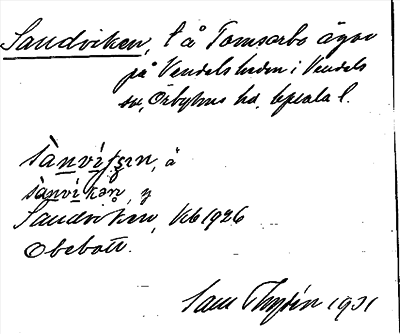 Sandviken, t å Tomsarbo ägor
på Vendels heden i Vendels
sn, Örbyhus hd, Upsala l.
sànvíʃʂɪn, ä
sànvíkən, y
Sandviken, Kb 1926
Obebott.
Sam 1931